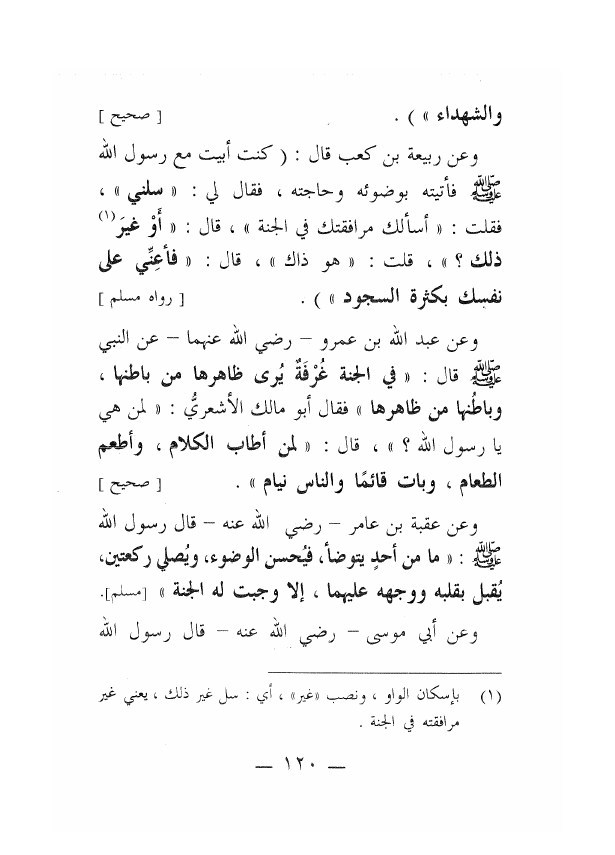 والشهداء » ) . [ صحيح ]
وعن ربيعة بن كعب قال : ( كنت أبيت مع رسول الله
ﷺ فأتيته بوضوئه وحاجته ، فقال لي : « سلني » ،
فقلت : « أسألك مرافقتك في الجنة » ، قال : « أَوْ غيرَ (١)
ذلك ؟ » ، قلت : « هو ذاك » ، قال : « فأعِنِّي على
نفسك بكثرة السجود » ) . [ رواه مسلم ]
وعن عبد الله بن عمرو – رضي الله عنهما – عن النبي
ﷺ قال : « في الجنة غُرْفَةٌ يُرى ظاهرها من باطنها ،
وباطُنها من ظاهرها » فقال أبو مالك الأشعريُّ : « لمن هي
يا رسول الله ؟ » ، قال : « لمن أطاب الكلام ، وأطعم
الطعام ، وبات قائمًا والناس نيام » . [ صحيح ]
وعن عقبة بن عامر – رضي الله عنه – قال رسول الله
ﷺ : « ما من أحدٍ يتوضأ، فيُحسن الوضوء، ويُصلي ركعتين،
يُقبل بقلبه ووجهه عليهما ، إلا وجبت له الجنة » [مسلم].
وعن أبي موسى – رضي الله عنه – قال رسول الله
(١) بإسكان الواو ، ونصب «غير» ، أي : سل غير ذلك ، يعني غير
مرافقته في الجنة .
— ١٢٠ —